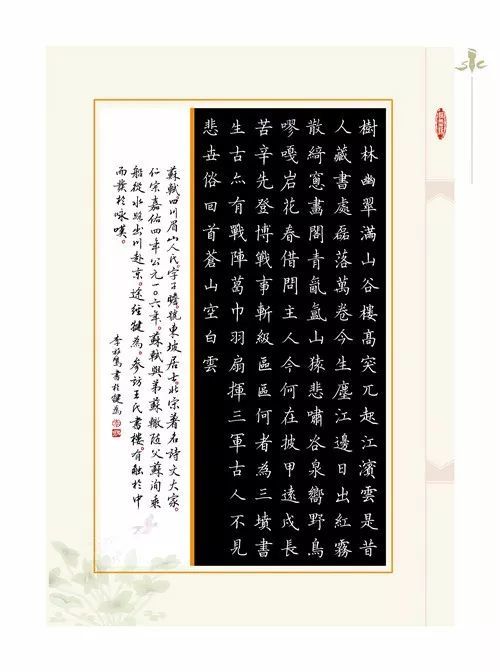 樹林幽翠滿山谷樓高突兀起江濱雲是昔
人藏書處磊落萬卷今生塵江邊日出紅霧
散綺窻畫閣青氤氳山猿悲嘯谷泉嚮野鳥
嘐嘎岩花春借問主人今何在披甲遠戍長
苦辛先登搏戰事斬級區區何者為三墳書
生古亦有戰陣葛巾羽扇揮三軍古人不見
悲世俗回首蒼山空白雲
蘇軾四川眉山人氏字子瞻號東坡居士。北宋著名詩文大家。
仁宗嘉佑四年公元一〇六年。蘇軾與弟蘇轍隨父蘇洵乘
船從水路出川赴京。途經犍為。參訪王氏書樓。有融於中
而發於咏嘆。
書於犍為